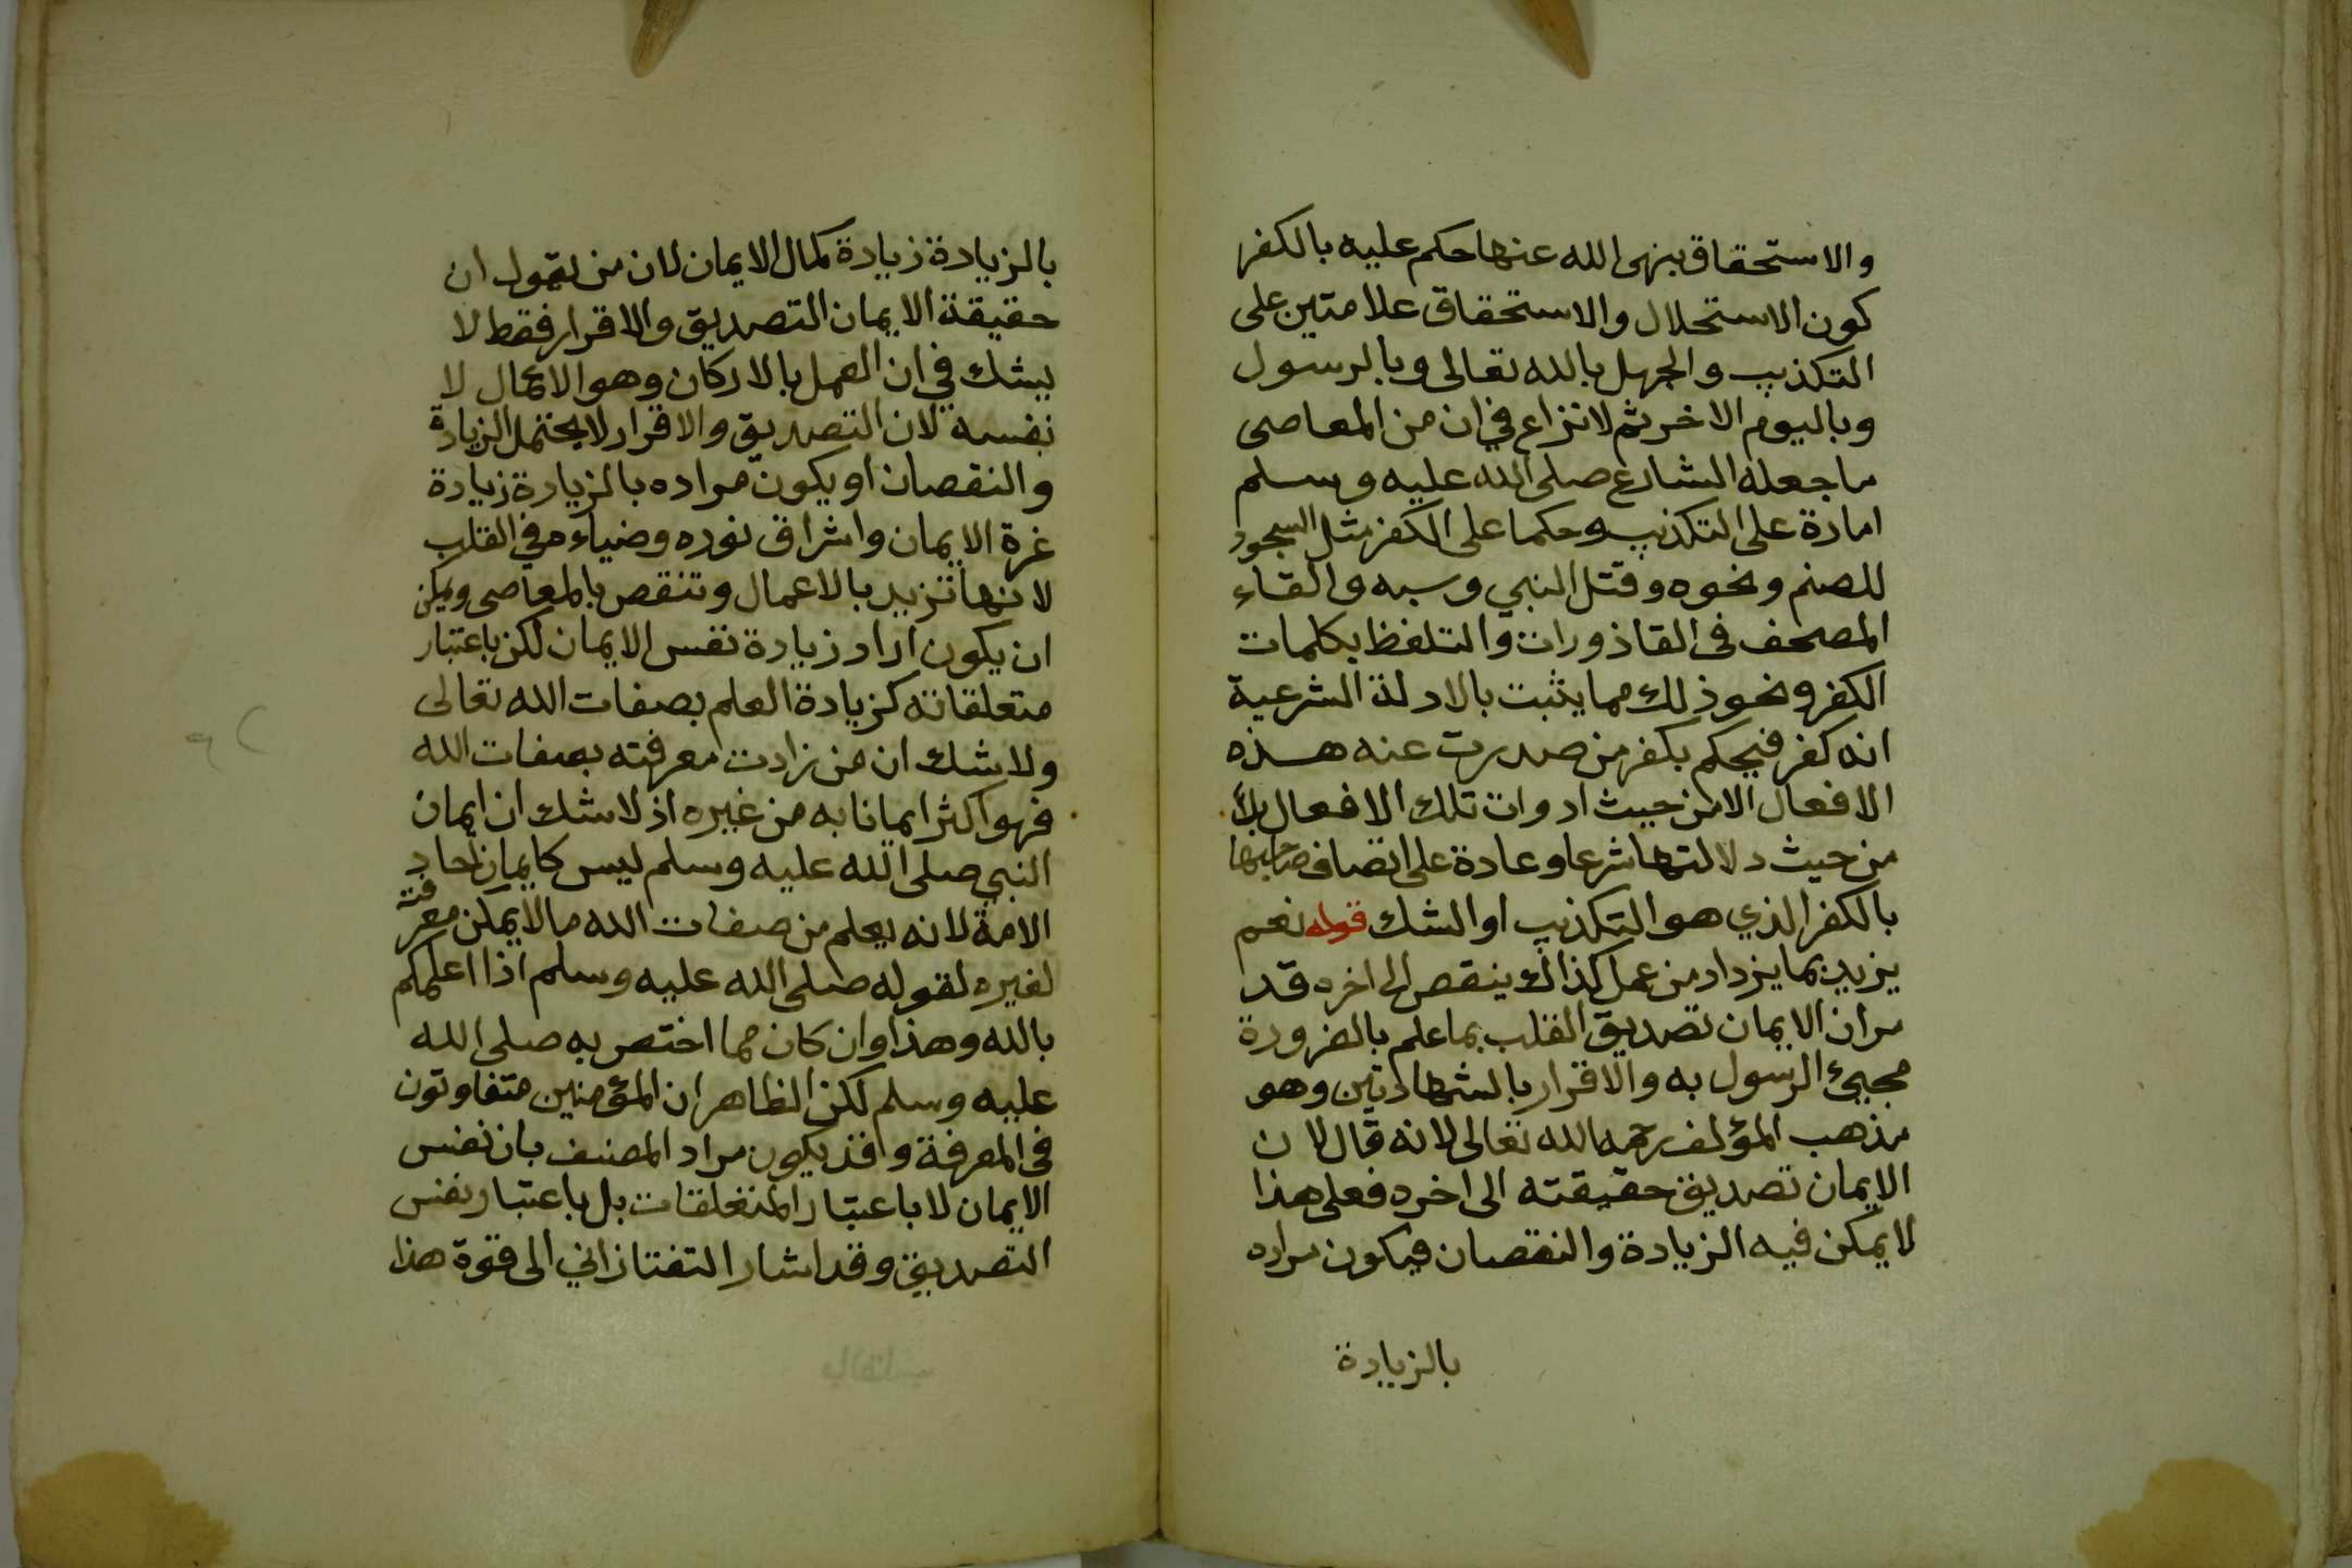 والاستحقاق بنهى الله عنها حكم عليه بالكفر
كون الاستحلال والاستحقاق علامتين على
التكذيب والجهل بالله تعالى وبالرسول
وباليوم الاخر ثم لا نزاع في ان من المعاصى
ما جعله الشارع صلى الله عليه وسلم
امارة على التكذيب وحكما على الكفر مثل السجود
للصنم ونحوه وقتل النبي وسبه والقاء
المصحف فى القاذورات والتلفظ بكلمات
الكفر ونحو ذلك مما يثبت بالادلة الشرعية
انه كفر فيحكم بكفر من صدرت عنه هذه
الافعال لا من حيث ادوات تلك الافعال بل
من حيث دلالتها شرعا وعادة على اتصاف صاحبها
بالكفر الذي هو التكذيب او الشك قوله نعم
يزيد بما يزداد من عمل كذاك ينقص الى اخره قد
مران الايمان تصديق القلب بما علم بالضرورة
مجيئ الرسول به والاقرار بالشهادتين وهو
مذهب المؤلف رحمه الله تعالى لانه قال لان
الايمان تصديق حقيقته الى اخره فعلى هذا
لا يمكن فيه الزيادة والنقصان فيكون مراده
بالزيادة
بالزيادة زيادة كمال الايمان لان من يقول ان
حقيقة الايمان التصديق والاقرار فقط لا
يشك في ان العمل بالاركان وهو الاعمال لا
نفسه لان التصديق والاقرار لا يحتمل الزيادة
والنقصان او يكون مراده بالزيادة زيادة
غرة الايمان واشراق نوره وضياءه في القلب
لانها تزيد بالاعمال وتنقص بالمعاصى ويمكن
ان يكون اراد زيادة نفس الايمان لكن باعتبار
متعلقاته كزيادة العلم بصفات الله تعالى
ولا شك ان من زادت معرفته بصفات الله
فهو اكثر ايمانا به من غيره اذ لا شك ان ايمان
النبي صلى الله عليه وسلم ليس كايمان احاد
الامة لانه يعلم من صفات الله ما لا يمكن معرفته
لغيره لقوله صلى الله عليه وسلم اذا اعلمكم
بالله وهذا وان كان مما اختص به صلى الله
عليه وسلم لكن الظاهر ان المؤمنين متفاوتون
فى المعرفة وقد يكون مراد المصنف بان نفس
الايمان لا باعتبار المتعلقات بل باعتبار نفس
التصديق وقد اشار التفتازاني الى قوة هذا